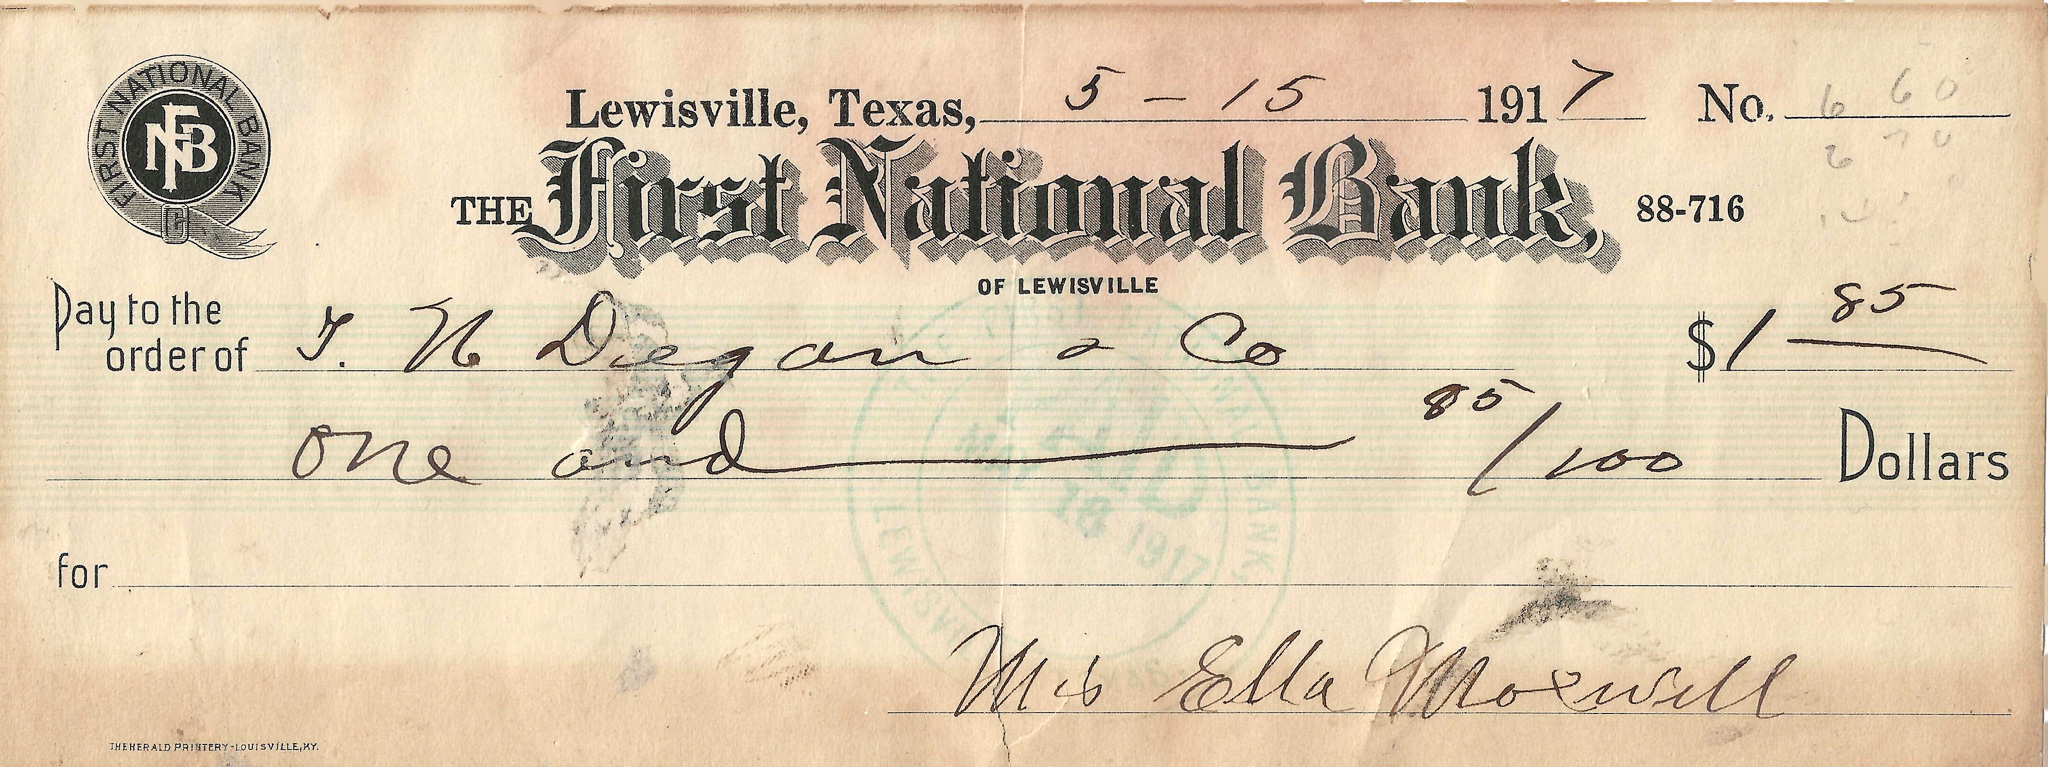 FIRST NATIONAL BANK
FNB
Lewisville, Texas, 5 - 15 1917 No.
THE First National Bank, 88-716
OF LEWISVILLE
Pay to the order of T. N Degan & Co $1 85
One and 85/100 Dollars
for
PAID
MAY 18 1917
NATIONAL BANK,
LEWISVILLE
Mrs Ella Moxwell
THE HERALD PRINTERY-LOUISVILLE, KY.